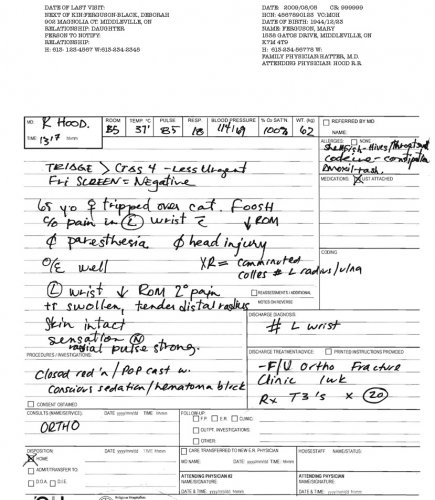 DATE OF LAST VISIT:
NEXT OF KIN:FERGUSON-BLACK, DEBORAH
902 MAGNOLIA CT. MIDDLEVILLE, ON
RELATIONSHIP: DAUGHTER
PERSON TO NOTIFY:
RELATIONSHIP:
H: 613-123-4567 W:613-234-2345
DATE: 2009/06/08 CR: 999999
HCN: 4567890123 VC:MOH
DATE OF BIRTH: 1944/12/23
NAME: FERGUSON, MARY
1558 GATOS DRIVE, MIDDLEVILLE, ON
K7M 4T9
H: 613 234-56778 W:
FAMILY PHYSICIAN: HATTER, M.D.
ATTENDING PHYSICIAN: HOOD R.R.
MD. R HOOD.
TIME 1317 hh:mm
ROOM B5
TEMP °C 37'
PULSE 85
RESP 18
BLOOD PRESSURE 114/69
% O2 SATN. 100%
WT. (kg) 62
REFERRED BY MD
NAME:
ALLERGIES: NONE
Shellfish - Hives/throat
codeine - constipation
Amoxil - rash.
MEDICATIONS: LIST ATTACHED
TRIAGE > CTAS 4 - Less Urgent
Fri SCREEN = Negative
65 yo ♀ tripped over cat. FOOSH
c/o pain in Ⓛ wrist c̄ ↓ROM
∅ paresthesia ∅ head injury
O/E well
XR = comminuted
colles # L radius/ulna
Ⓛ wrist ↓ ROM 2° pain
++ swollen, tender distal radius
Skin intact
sensation Ⓝ
radial pulse strong.
CODING:
REASSESSMENTS / ADDITIONAL
NOTES ON REVERSE
DISCHARGE DIAGNOSIS:
# L wrist
PROCEDURES / INVESTIGATIONS:
Closed red'n / POP cast w.
Conscious sedation / hematoma block
CONSENT OBTAINED
DISCHARGE TREATMENT/ADVICE: PRINTED INSTRUCTIONS PROVIDED
- F/U Ortho Fracture
Clinic 1wk
Rx T3's x 20
CONSULTS (NAME/SERVICE): DATE yyyy/mm/dd TIME hh:mm
ORTHO
FOLLOW-UP:
F.P. E.R. CLINIC:
OUTPT. INVESTIGATIONS:
OTHER:
DISPOSITION: DATE yyyy/mm/dd TIME hh:mm
HOME
ADMIT/TRANSFER TO:
D.O.A. D.I.E.
CARE TRANSFERRED TO NEW E.R. PHYSICIAN
MD NAME: DATE yyyy/mm/dd TIME hh:mm
HOUSESTAFF NAME/STATUS:
ATTENDING PHYSICIAN #2
NAME/SIGNATURE:
DATE & TIME yyyy/mm/dd hh:mm
ATTENDING PHYSICIAN
NAME/SIGNATURE:
DATE & TIME yyyy/mm/dd hh:mm